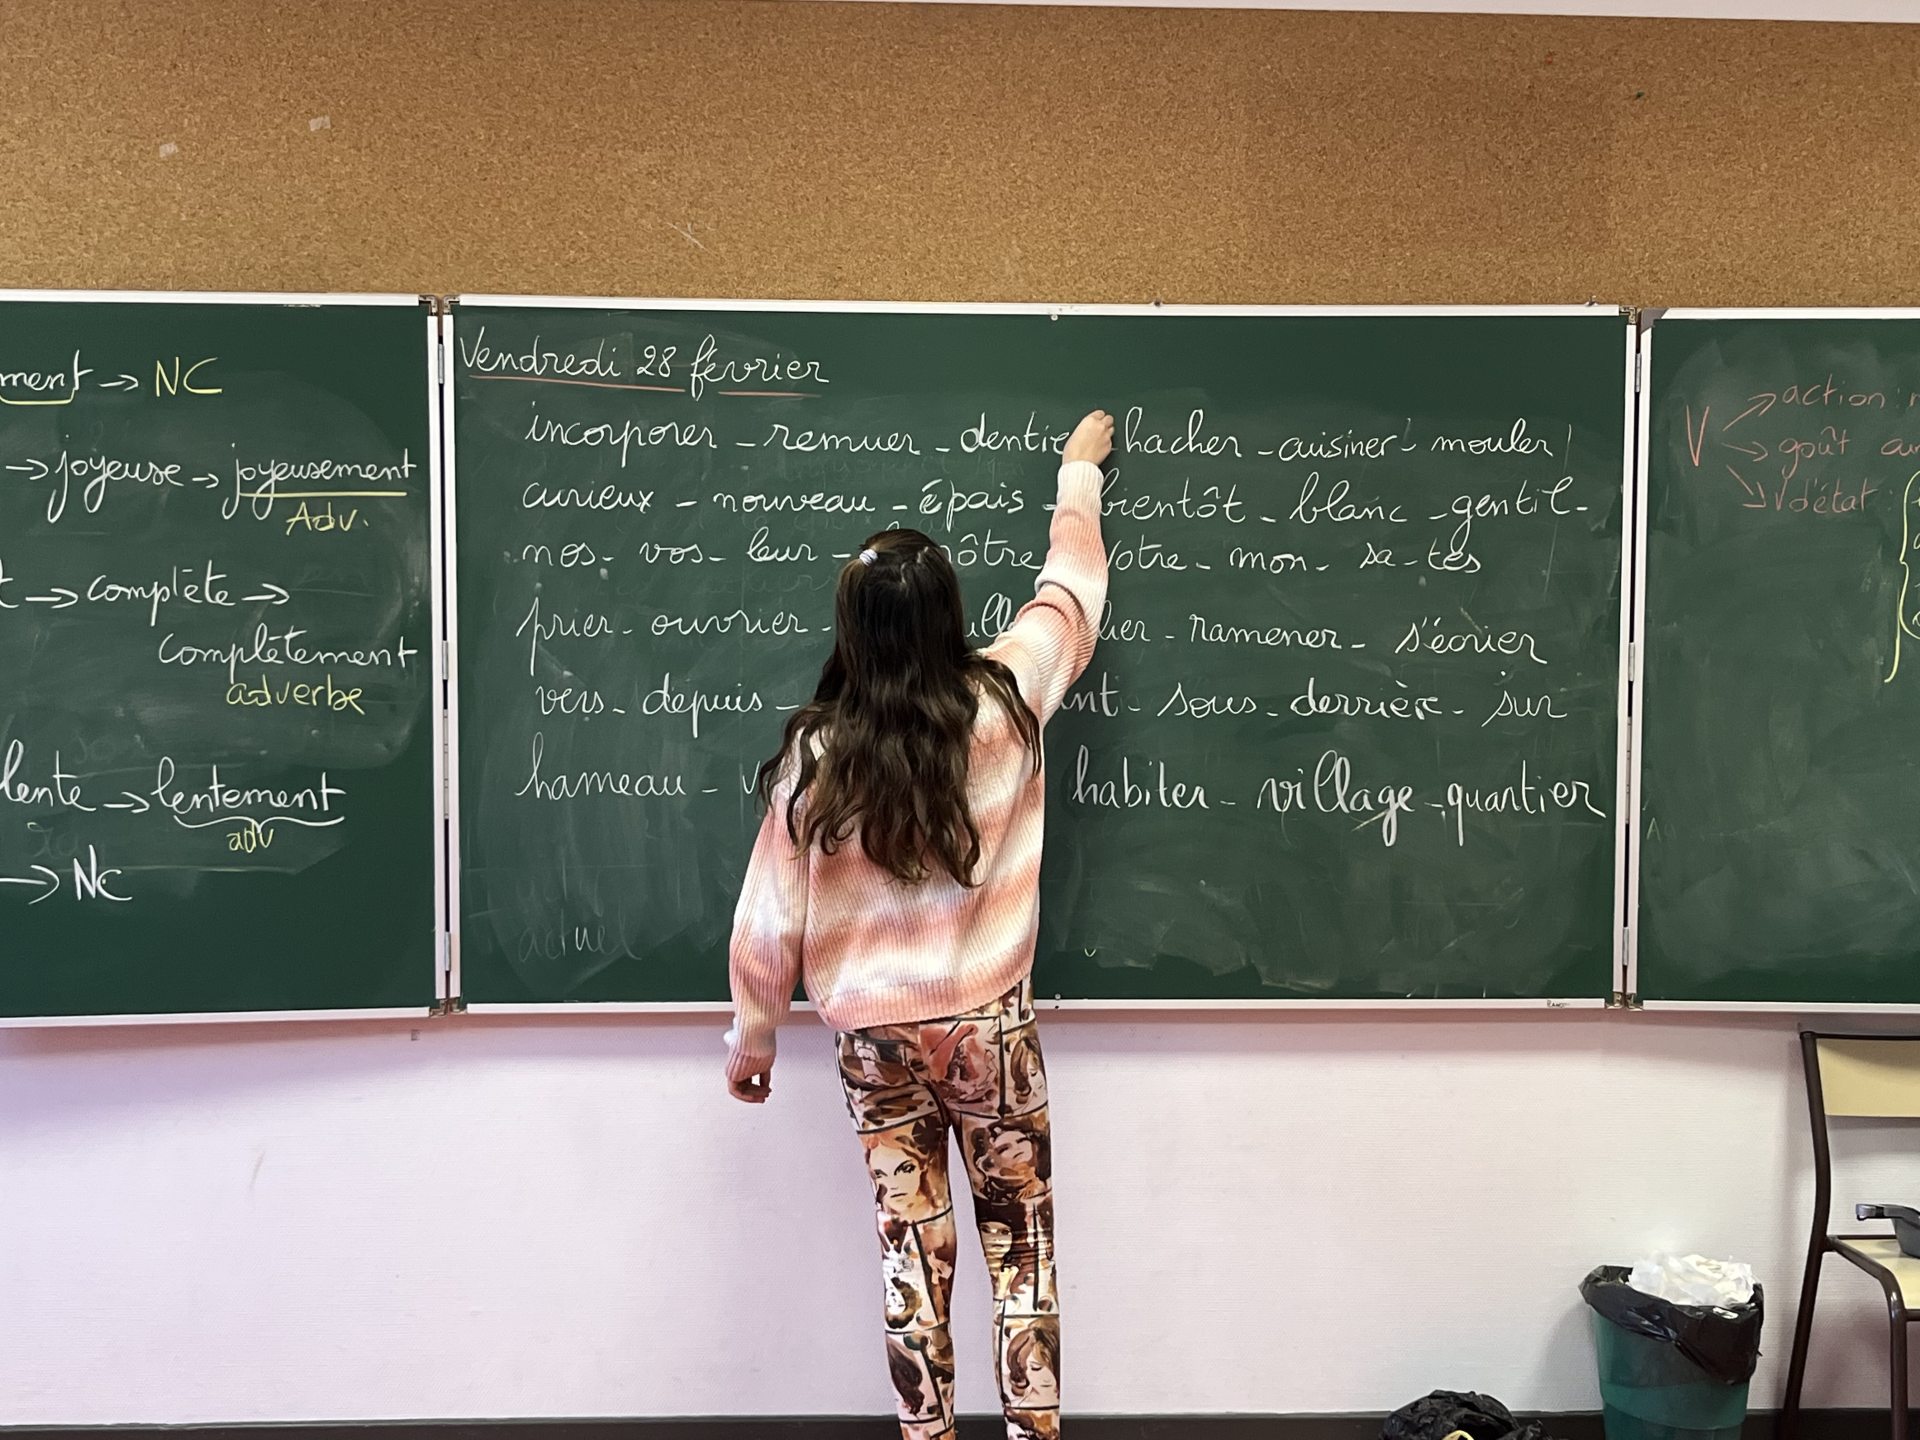 ment → NC
→ joyeuse → joyeusement
Adv.
→ complète →
complètement
adverbe
lente → lentement
adv
→ NC
Vendredi 28 février
incorporer - remuer - dentier hacher - cuisiner - mouler
curieux - nouveau - épais - bientôt - blanc - gentil -
nos - vos - leur - nôtre votre - mon - sa - tes
prier - ouvrier - lier - ramener - s'écrier
vers - depuis - - sous - derrière - sur
hameau - habiter - village - quartier
actuel
V → action :
→ goût
→ V d'état :